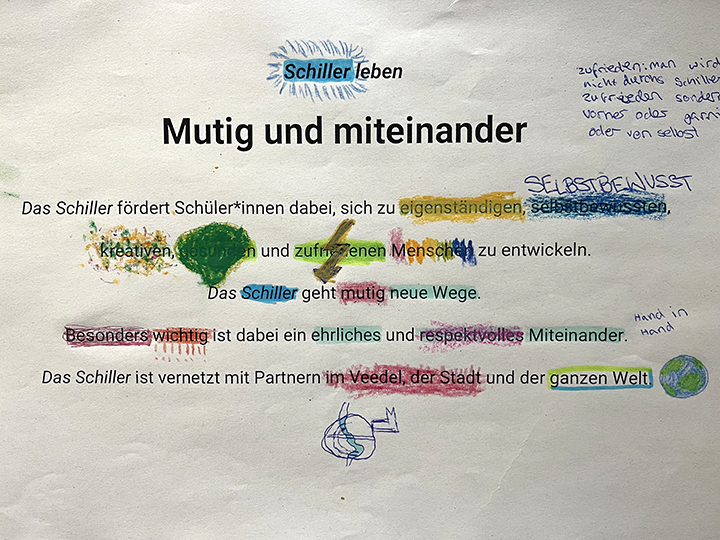 Schiller leben
zufrieden: man wird
nicht durchs Schiller
zufrieden sondern
vorher oder garni
oder von selbst
Mutig und miteinander
SELBSTBEWUSST
Das Schiller fördert Schüler*innen dabei, sich zu eigenständigen, selbstbewussten,
kreativen, gesunden und zufriedenen Menschen zu entwickeln.
Das Schiller geht mutig neue Wege.
Hand in
Hand
Besonders wichtig ist dabei ein ehrliches und respektvolles Miteinander.
Das Schiller ist vernetzt mit Partnern im Veedel, der Stadt und der ganzen Welt.